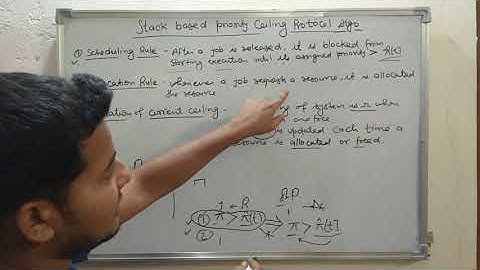 Stack based priority Ceiling Protocol algo
① Scheduling Rule - After a job is released, it is blocked from
starting execution until its assigned priority > π̂(t)
cation Rule - whenever a job requests a resource, it is allocated
the resource
ation of current ceiling - of system is Ω when
one free.
is updated each time a
resource is allocated or freed.
J ← R
① π > π̂(t)
②
π > π̂(t)